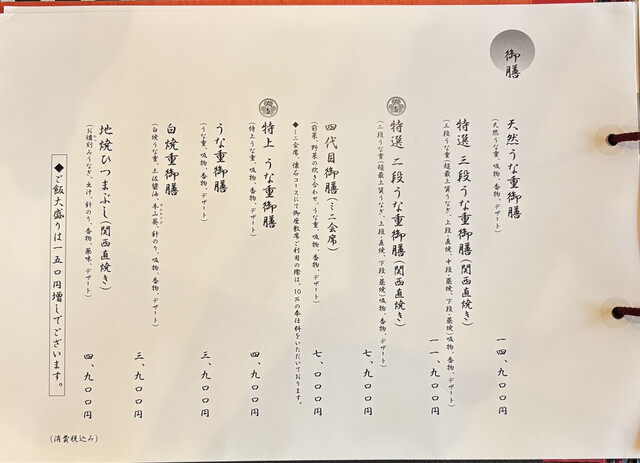 御膳
天然うな重御膳
(天然うな重、吸物、香物、デザート)
一四、九〇〇円
特選 三段うな重御膳(関西直焼き)
(三段うな重(超最上質うなぎ、上段・直焼、中段・蒸焼、下段・蒸焼)吸物、香物、デザート)
一一、九〇〇円
特選 二段うな重御膳(関西直焼き)
(二段うな重(超最上質うなぎ、上段・直焼、下段・蒸焼)吸物、香物、デザート)
七、九〇〇円
四代目御膳(ミニ会席)
(前菜、野菜の炊き合わせ、うな重、吸物、香物、デザート)
七、〇〇〇円
◆ミニ会席、懐石コースにて御座敷席ご利用の際は、10%の奉仕料をいただいております。
特上 うな重御膳
(特上うな重、吸物、香物、デザート)
四、九〇〇円
うな重御膳
(うな重、吸物、香物、デザート)
三、九〇〇円
白焼重御膳
(白焼うな重、土佐醤油、本山葵、針のり、吸物、香物、デザート)
三、九〇〇円
地焼ひつまぶし(関西直焼き)
(お櫃刻みうなぎ、出汁、針のり、香物、薬味、デザート)
四、九〇〇円
◆ご飯大盛りは一五〇円増しでございます。
(消費税込み)